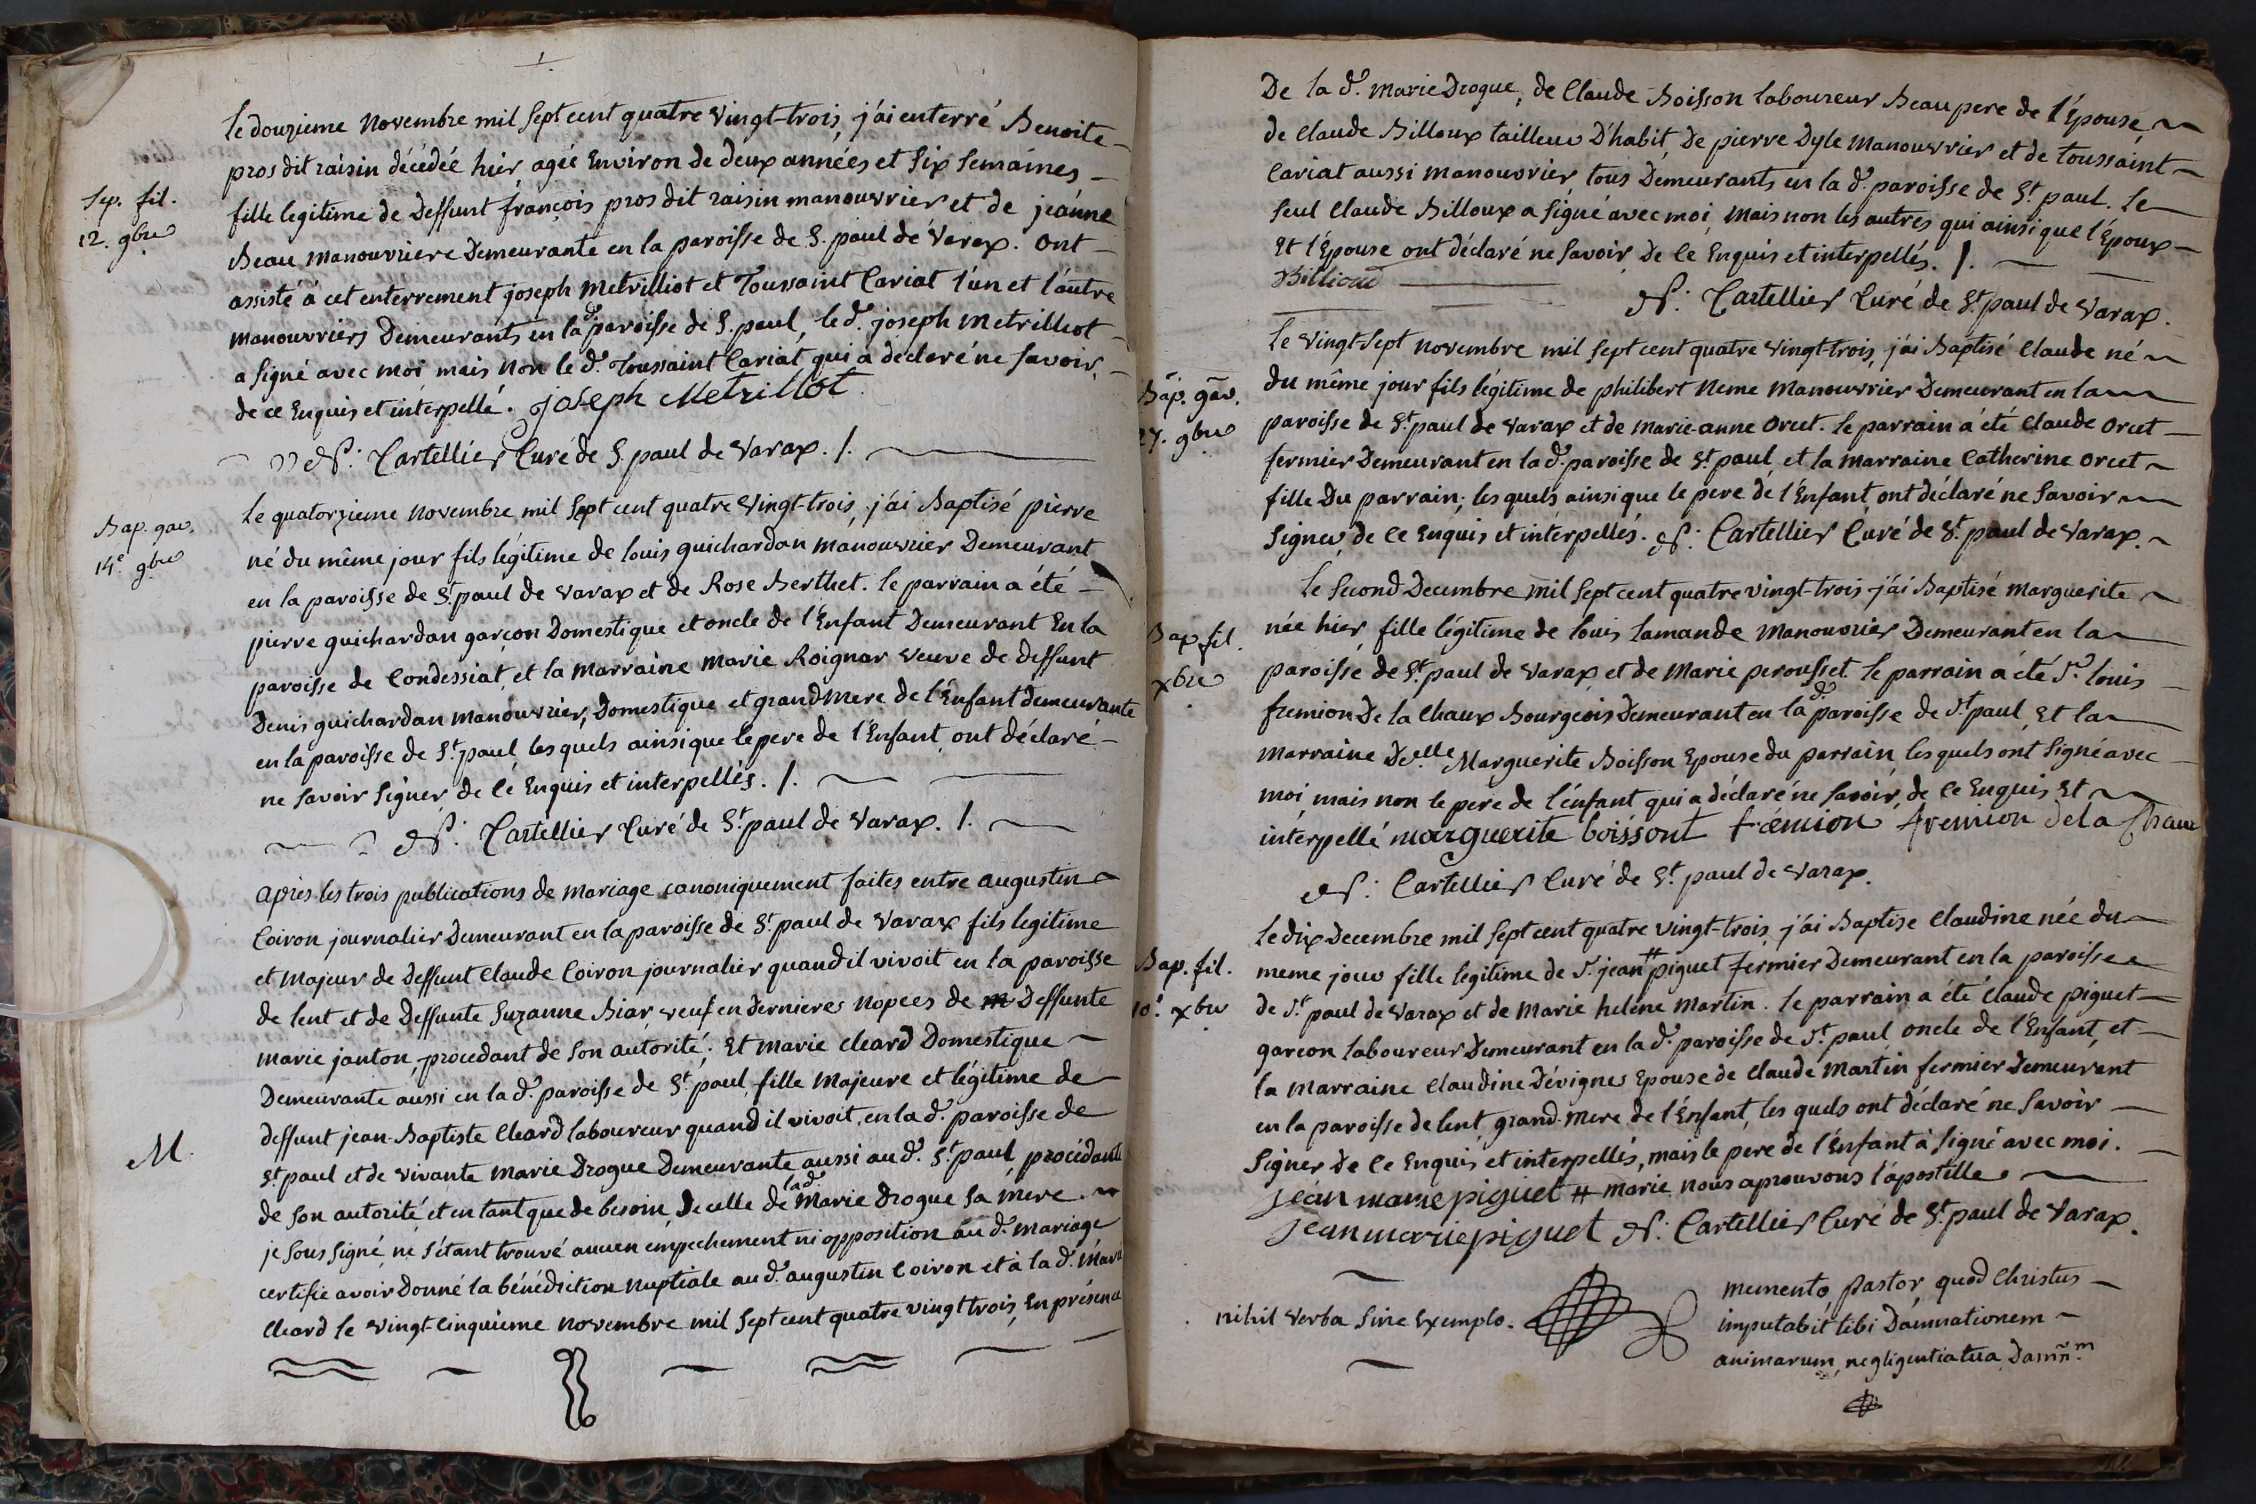 Le douzieme Novembre mil sept cent quatre vingt-trois, j'ai enterré Benoite
pros dit raisin décédée hier, agée Environ de deux années et six semaines
Sep. fil.
12. 9bre
fille legitime de deffunt françois pros dit raisin manouvrier et de jeanne
Beau manouvriere Demeurante en la paroisse de S. paul de Varax. Ont
assisté à cet enterrement joseph Metrilliot et Toussaint Cariat l'un et l'autre
manouvriers Demeurants en la d. paroisse de S. paul, le d. joseph Metrilliot
a signé avec moi mais non le d. Toussaint Cariat qui a declaré ne savoir,
de ce Enquis et interpellé. joseph Metrillot
N. Cartellier Curé de S. paul de Varax. /.
Bap. gar.
14e 9bre
Le quatorzieme Novembre mil sept cent quatre vingt-trois, j'ai Baptisé pierre
né du même jour fils légitime de louis guichardan manouvrier Demeurant
en la paroisse de St. paul de Varax et de Rose Berthet. le parrain a été
pierre guichardan garçon Domestique et oncle de l'Enfant Demeurant En la
paroisse de Condessiat, et la Marraine Marie Roignar veuve de deffunt
Denis guichardan manouvrier, Domestique et grand Mere de l'Enfant demeurante
en la paroisse de St. paul, les quels ainsi que le pere de l'Enfant, ont déclaré
ne savoir signer, de ce Enquis et interpellés. /.
N. Cartellier Curé de St. paul de Varax. /.
après les trois publications de mariage canoniquement faites entre augustin
Coiron journalier Demeurant en la paroisse de St. paul de Varax fils legitime
et Majeur de deffunt Claude Coiron journalier quand il vivoit en la paroisse
de lent et de Deffunte Suzanne Biar, veuf en dernieres Nopces de Deffunte
marie janton, procedant de son autorité; Et Marie Cleard Domestique
Demeurante aussi en la d. paroisse de St. paul, fille Majeure et légitime de
M.
deffunt jean-Baptiste Cleard laboureur quand il vivoit, en la d. paroisse de
St. paul et de vivante Marie Drogue Demeurante aussi au d. St. paul, procédante
de son autorité, et en tant que de besoin, de celle de la d. Marie Drogue sa mere.
je sous signé, ne s'étant trouvé aucun empechement ni opposition au d. mariage
certifie avoir Donné la bénédiction Nuptiale au d. augustin Coiron et à la d. Marie
Cleard le vingt-Cinquieme novembre mil sept cent quatre vingt trois, En présence
De la d. Marie Drogue, de Claude Boisson laboureur Beau pere de l'Épouse,
de Claude Billoux tailleur D'habit, De pierre Dyle Manouvrier et de Toussaint
Cariat aussi manouvrier, tous Demeurants en la d. paroisse de St. paul. le
seul Claude Billoux a signé avec moi, Mais non les autres qui ainsi que l'Époux
Et l'Épouse ont déclaré ne savoir, De ce Enquis et interpellés. /.
Billioud
N. Cartellier Curé de St. paul de Varax.
Bap. gar.
27. 9bre
Le vingt-sept novembre mil sept cent quatre vingt-trois, j'ai Baptisé Claude né
du même jour fils légitime de philibert Neme Manouvrier Demeurant en la
paroisse de St. paul de Varax et de Marie-anne Orcet. Le parrain a été Claude Orcet
fermier Demeurant en la d. paroisse de St. paul, et la Marraine Catherine Orcet
fille Du parrain; les quels ainsi que le pere de l'Enfant, ont déclaré ne savoir
signer, de ce Enquis et interpellés. N. Cartellier Curé de St. paul de Varax.
Bap. fil.
xbre
Le second Decembre mil sept cent quatre vingt-trois j'ai Baptisé Marguerite
née hier, fille légitime de louis lamande Manouvrier Demeurant en la
paroisse de St. paul de Varax, et de Marie perousset. Le parrain a été Sr. louis
fremion De la Chaux Bourgeois Demeurant en la d. paroisse de St. paul, Et la
marraine Delle Marguerite Boisson Epouse du parrain, les quels ont signé avec
moi, mais non le pere de l'enfant qui a déclaré ne savoir, de ce Enquis Et
interpellé marguerite boissont fremion fremion de la Chaux
N. Cartellier Curé de St. paul de Varax.
Bap. fil.
10e xbre
Le dix Decembre mil sept cent quatre vingt-trois, j'ai Baptise Claudine née du
meme jour fille legitime de Sr. jean # piguet fermier Demeurant en la paroisse
de St. paul de Varax et de Marie helene Martin. le parrain a été Claude piguet
garcon laboureur Demeurant en la d. paroisse de St. paul, oncle de l'Enfant, et
la Marraine Claudine Dévignes Epouse de Claude Martin fermier Demeurant
en la paroisse de lent, grand-mere de l'Enfant, les quels ont déclaré ne savoir
signer De ce Enquis et interpellés, mais le pere de l'Enfant à signé avec moi.
jean marie piguet # marie nous aprouvons l'apostille
jean marie piguet N. Cartellier Curé de St. paul de Varax.
nihil verba sine Exemplo.
memento, pastor, quod Christus
imputabit tibi Damnationem
animarum, negligentia tua, damn.m